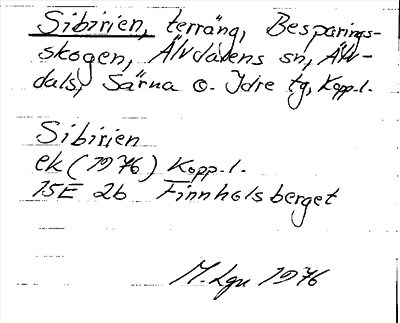 Sibirien, terräng, Besparings-
skogen, Älvdalens sn, Älv-
dals, Särna o. Idre tg, Kopp.l.
Sibirien
ek (1976) Kopp.l.
15E 2b Finnholsberget
M.Lgn 1976